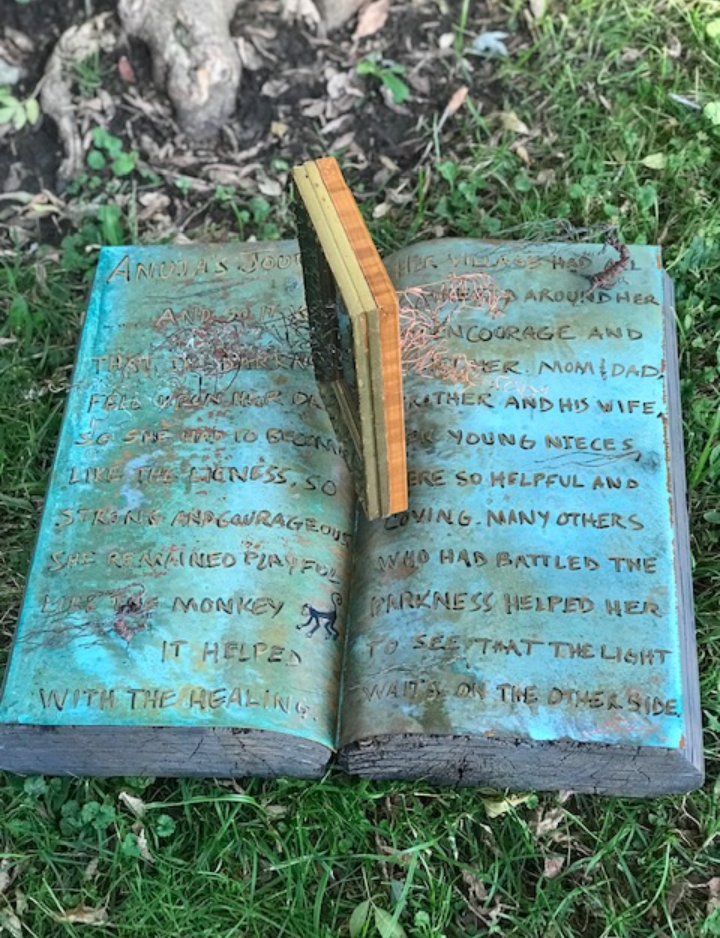 ANUJA'S
AND SO IT
THAT, THE DARKNESS
FELL UPON HER
SO SHE HAD TO BECOME
LIKE THE LIONESS, SO
STRONG AND COURAGEOUS
SHE REMAINED PLAYFUL
LIKE THE MONKEY
IT HELPED
WITH THE HEALING.
HER VILLAGE HAD ALL
AROUND HER
ENCOURAGE AND
HER. MOM & DAD,
BROTHER AND HIS WIFE,
HER YOUNG NIECES,
WERE SO HELPFUL AND
LOVING. MANY OTHERS
WHO HAD BATTLED THE
DARKNESS HELPED HER
TO SEE THAT THE LIGHT
WAITS ON THE OTHER SIDE.